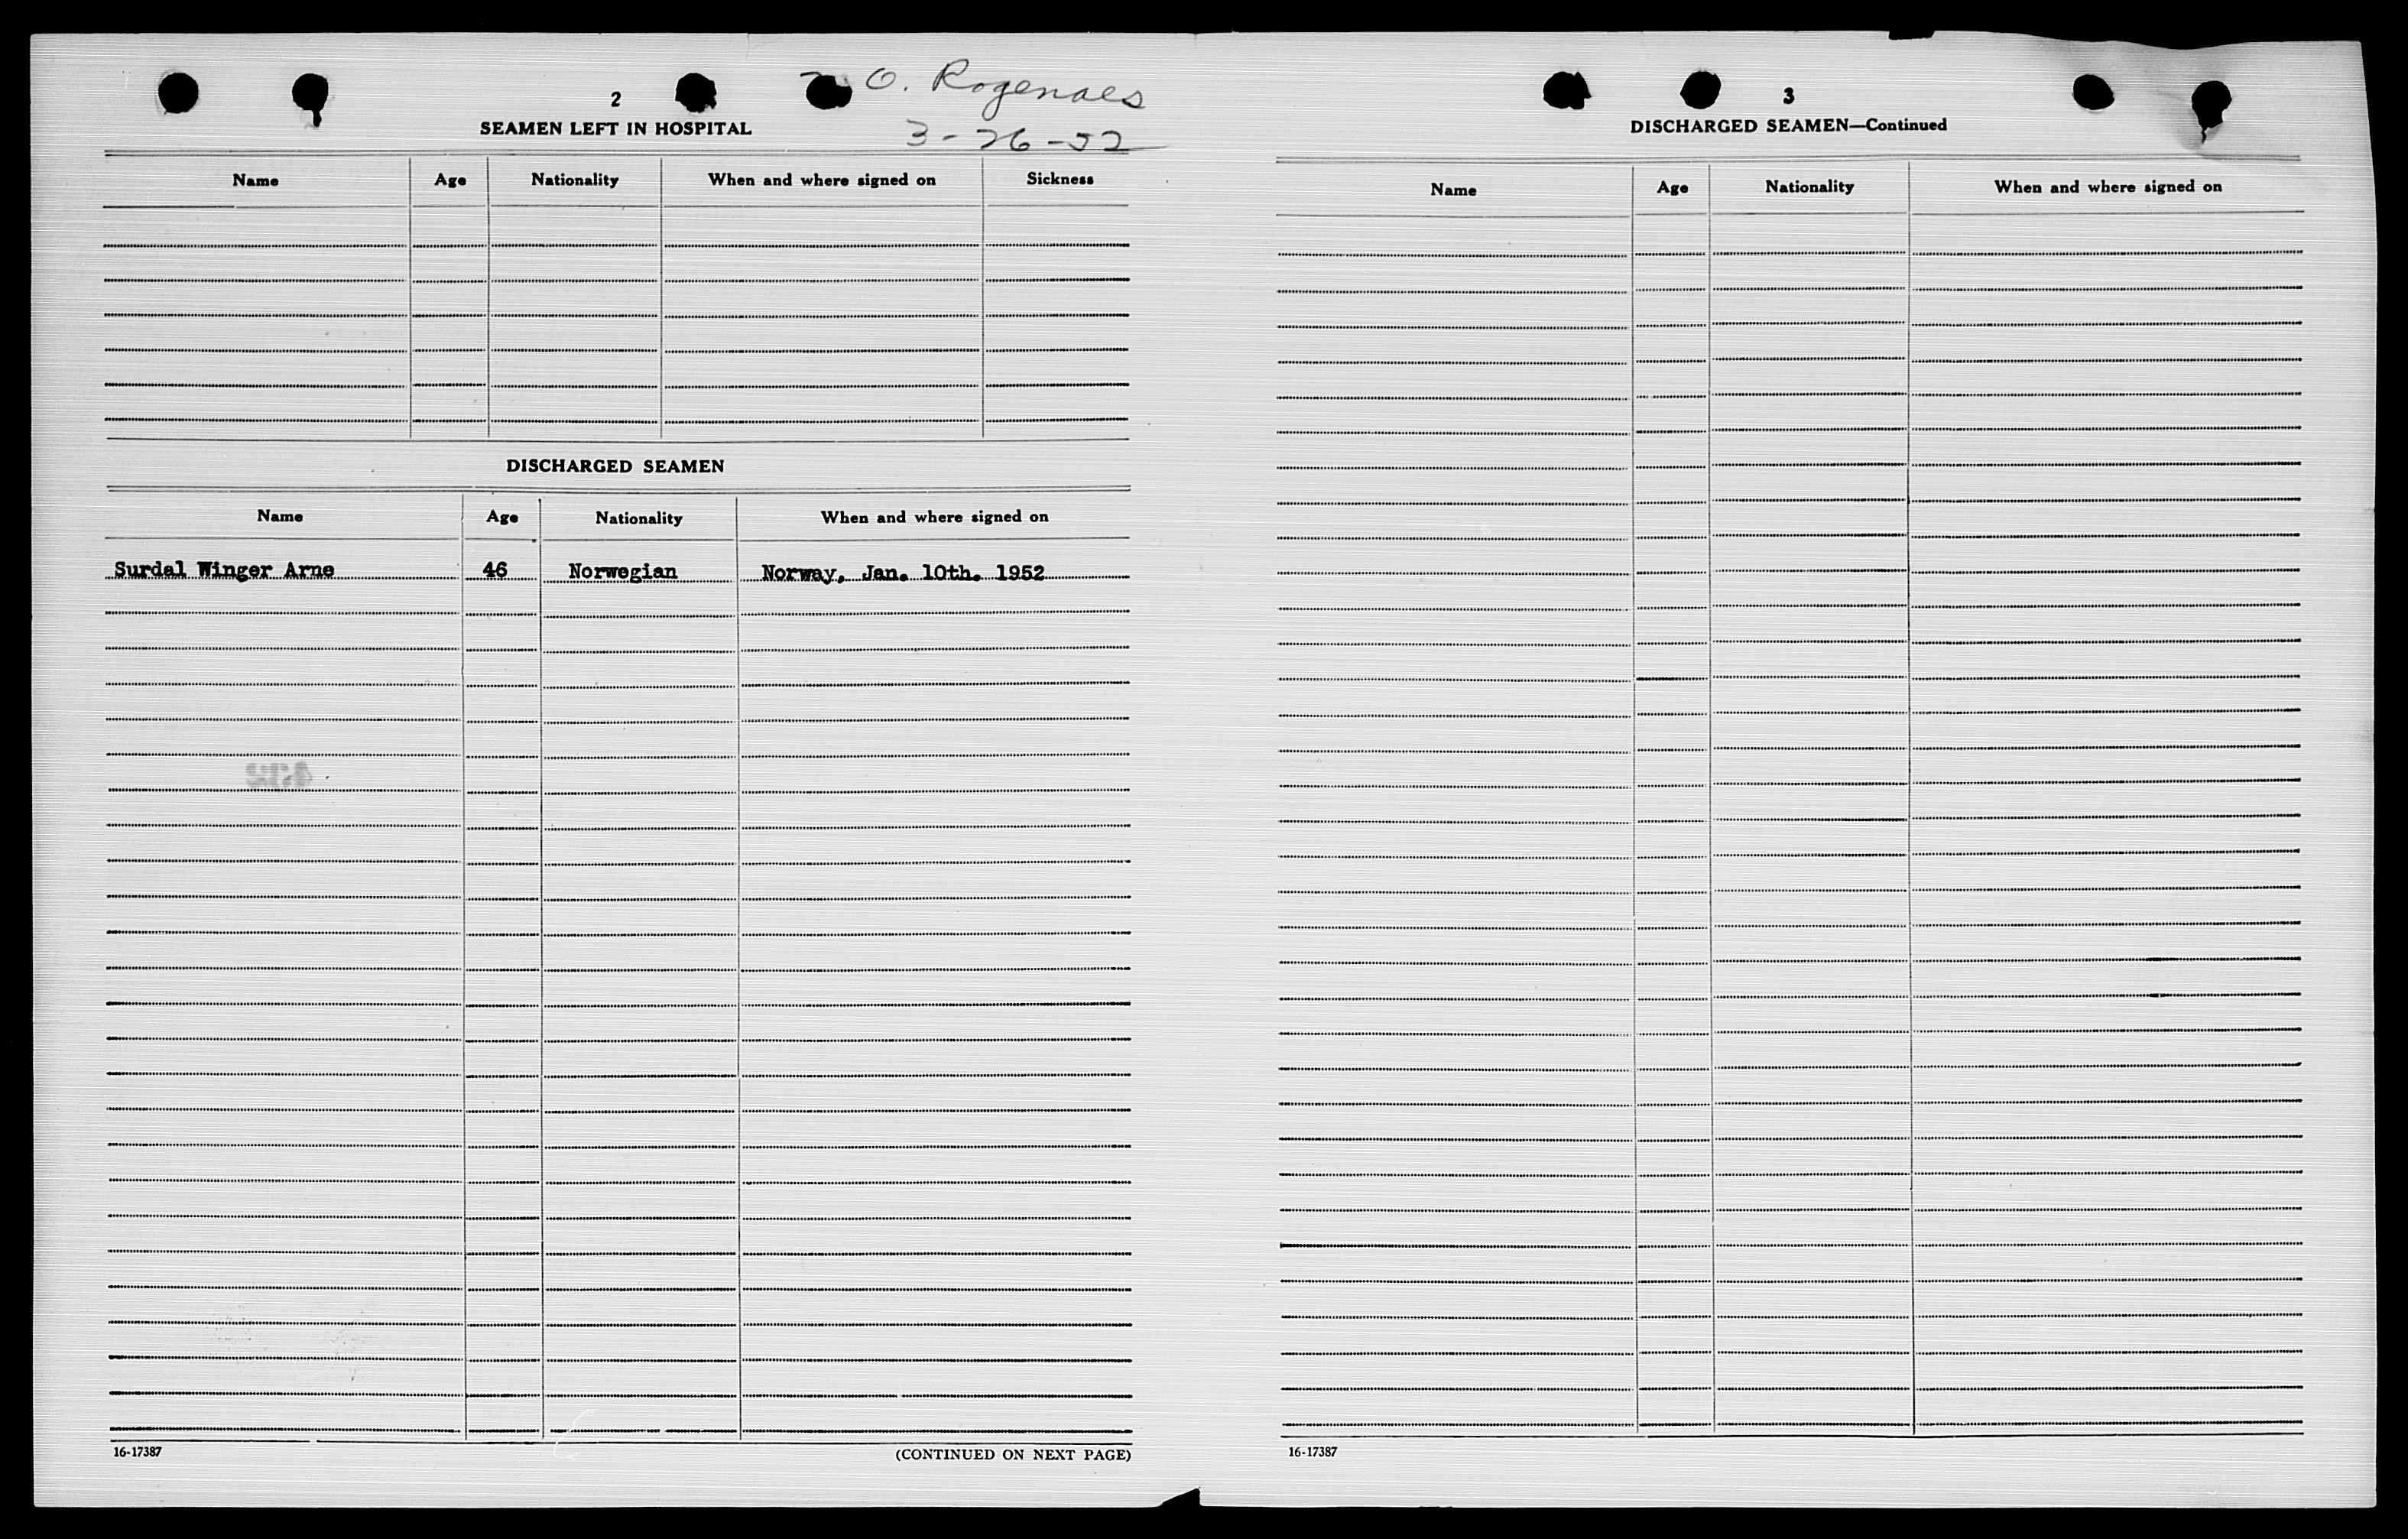 2
O. Rogenaes
SEAMEN LEFT IN HOSPITAL
3-26-52
Name Age Nationality When and where signed on Sickness
DISCHARGED SEAMEN
Name Age Nationality When and where signed on
Surdal Winger Arne 46 Norwegian Norway, Jan. 10th. 1952
16-17387
(CONTINUED ON NEXT PAGE)
3
DISCHARGED SEAMEN—Continued
Name Age Nationality When and where signed on
16-17387